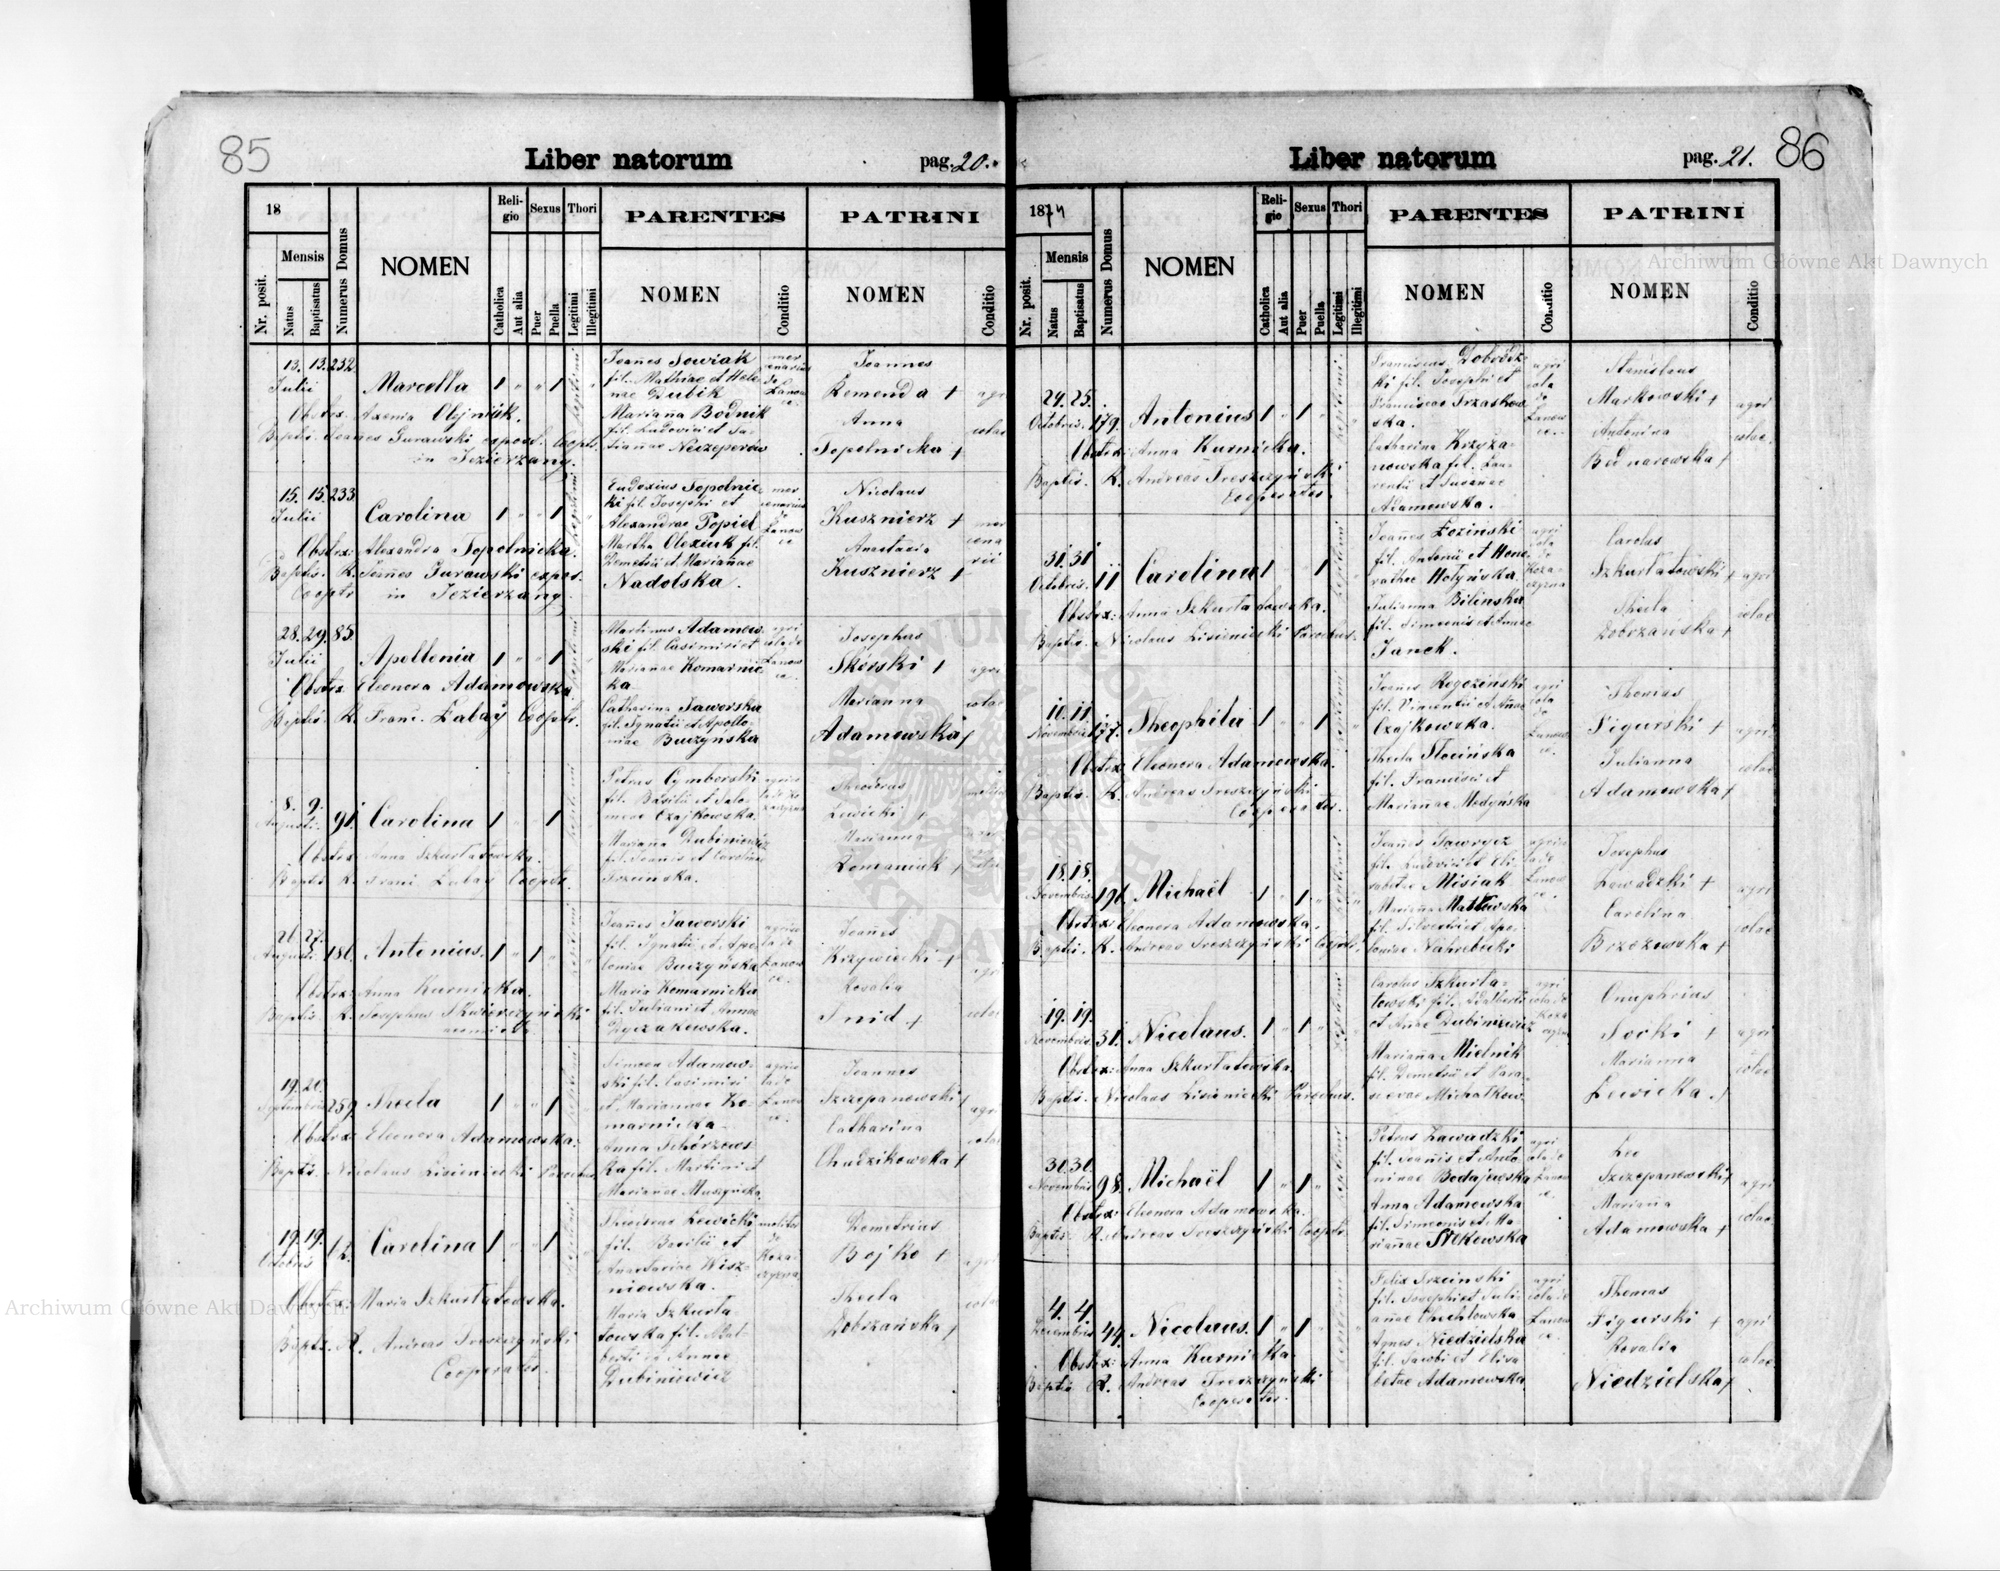 85
Liber natorum
pag. 20.
18
Mensis
Nr. posit.
Natus
Baptisatus
Numerus Domus
NOMEN
Reli-
gio
Sexus
Thori
Catholica
Aut alia
Puer
Puella
Legitimi
Illegitimi
PARENTES
NOMEN
Conditio
PATRINI
NOMEN
Conditio
13. 13. 232
Julii
Marcella
Obstrx. Axenia Olejniuk.
Baptis. Joannes Jurawski expost. Coopr.
in Jezierzany.
Joañes Sowiak
fil. Mathiae et Hele-
nae Dubik
Mariaña Bodnik
fil. Ludovici et Ta-
tiannae
Joannes
Remenda +
Anna
Sopolnicka +
15. 15. 233
Julii
Carolina
Obstrx: Alexandra Sopolnicka.
Baptis. R. Joañes Jurawski expos.
Cooptr in Jezierzany.
Eudoxius Sopolnic-
ki fil. Josephi et
Alexandrae Popiel
Martha Olexiuk fil.
Demetrii et Mariañae
Nadolska.
Nicolaus
Kusznierz +
Anastasia
Kusznierz +
28. 29. 85.
Julii
Apollonia
Obstrx Eleonora Adamowska
Baptis. R. Franc. Łabaÿ Cooptr.
Martinus Adamow-
ski fil. Casimiri et
Mariañae Komarnic-
ka
Catharina Jaworska
fil. Ignatii et Apollo-
niae Buczyńska
Josephus
Skórski +
Marianna
Adamowska +
8. 9. 91.
Augusti.
Carolina
Obstrx Anna Szkurłatowska.
Baptis R. Franc. Łabay Cooptr.
Petrus Cymborski
fil. Basilii et Salo-
meae Czajkowska.
Mariaña Dubiniewicz
fil. Joanis et Carolinae
Trzcińska.
Theodorus
Lewicki +
Marianna
Romaniuk +
26. 27. 180.
Augusti
Antonius.
Obstrx: Anna Kurnicka.
Baptis R. Josephus Skwierczyński
Joañes Jaworski
fil. Ignatii et Apo-
loniae Buczyńska
Maria Komarnicka
fil. Juliani et Annae
Ryczakowska.
Joañes
Krzywiecki +
Rosalia
Snid +
19. 20. 259
Septembris
Thecla
Obstrx: Eleonora Adamowska.
Baptis. Nicolaus Lisieniecki Parochus
Simeon Adamow-
ski fil. Casimiri
et Mariannae Ko-
marnicka
Anna Skórzews-
ka fil. Martini et
Mariañae Muszyńska.
Joannes
Szczepanowski +
Catharina
Chudzikowska +
19. 19. 12.
Octobris
Carolina
Obstrx: Maria Szkurłatowska.
Baptis. R. Andreas Treszczyński
Cooperator.
Theodorus Lewicki
fil. Basilii et
Anastasiae Wisz-
niewska.
Maria Szkurła-
towska fil. Adal-
berti et Annae
Dubiniewicz
molitor
de
Koza-
czyzna
Demetrius
Bojko +
Thecla
Dobrzańska +
86
Liber natorum
pag. 21.
1874
Mensis
Nr. posit.
Natus
Baptisatus
Numerus Domus
NOMEN
Reli-
gio
Sexus
Thori
Catholica
Aut alia
Puer
Puella
Legitimi
Illegitimi
PARENTES
NOMEN
Conditio
PATRINI
NOMEN
Conditio
24. 25. 179.
Octobris
Antonius
Obstrx: Anna Kurnicka.
Baptis. R. Andreas Treszczyński
Cooperator.
Franciscus Dobrodz-
ki fil. Josephi et
Franciscae Trzaskow-
ska.
Catharina Krzyża-
nowska fil. Lau-
rentii et Susanae
Adamowska.
Stanislaus
Markowski +
Antonina
Bednarowska +
agri
colae.
31. 31 11
Octobris
Carolina
Obstrx: Anna Szkurłatowska.
Baptis. Nicolaus Lisieniecki Parochus.
Joañes Łoziński
fil. Antonii et Hono-
rathae Hołyńska.
Julianna Bilinska
fil. Simeonis et Annae
Janek.
Carolus
Szkurłatowski +
Thecla
Dobrzańska +
agri
colae
10. 11. 177.
Novembris
Theophila
Obstrx: Eleonora Adamowska.
Baptis. R. Andreas Treszczyński
Cooperator.
Joañes Rogoziński
fil. Vincentii et Añae
Czajkowska.
Thecla Słocińska
fil. Francisci et
Mariañae Medyńska
Thomas
Figurski +
Julianna
Adamowska +
agri
colae
18. 18. 191.
Novembris
Michaël
Obstrx: Eleonora Adamowska.
Baptis. R. Andreas Treszczyński Cooptr.
Joañes Gawrycz
fil. Ludovici et Eli-
sabetae Misiak
Mariaña Małkowska
fil. Silvestri et Apo-
loniae Nahrebecki
Josephus
Zawadzki +
Carolina
Brzozowska +
agri
colae
19. 19. 31.
Novembris
Nicolaus.
Obstrx: Anna Szkurłatowska.
Baptis. Nicolaus Lisieniecki Parochus.
Carolus Szkurła-
towski fil. Adalberti
et Añae Dubiniewicz
Mariaña Mielnik
fil. Demetrii et Para-
scevae Michałkow.
Onuphrius
Socki +
Marianna
Lewicka +
agri
colae
30. 30. 98.
Novembris
Michaël
Obstrx: Eleonora Adamowska.
Baptis R. Andreas Treszczyński Cooptr.
Petrus Zawadzki
fil. Joañis et Anto-
ninae Bodajewska
Anna Adamowska
fil. Simeonis et Ma-
riañae
Leo
Szczepanowski +
Mariaña
Adamowska +
agri
colae
4. 4. 44.
Decembris
Nicolaus.
Obstrx: Anna Kurnicka.
Baptis R. Andreas Treszczyński
Cooperator.
Felix Trzcinski
fil. Josephi et Juli-
anae Chuchłowska
Agnes Niedzielska
fil. Jacobi et Elisa-
betae Adamowska
Thomas
Figurski +
Rosalia
Niedzielska +
agri
colae
Archiwum Główne Akt Dawnych
Archiwum Główne Akt Dawnych